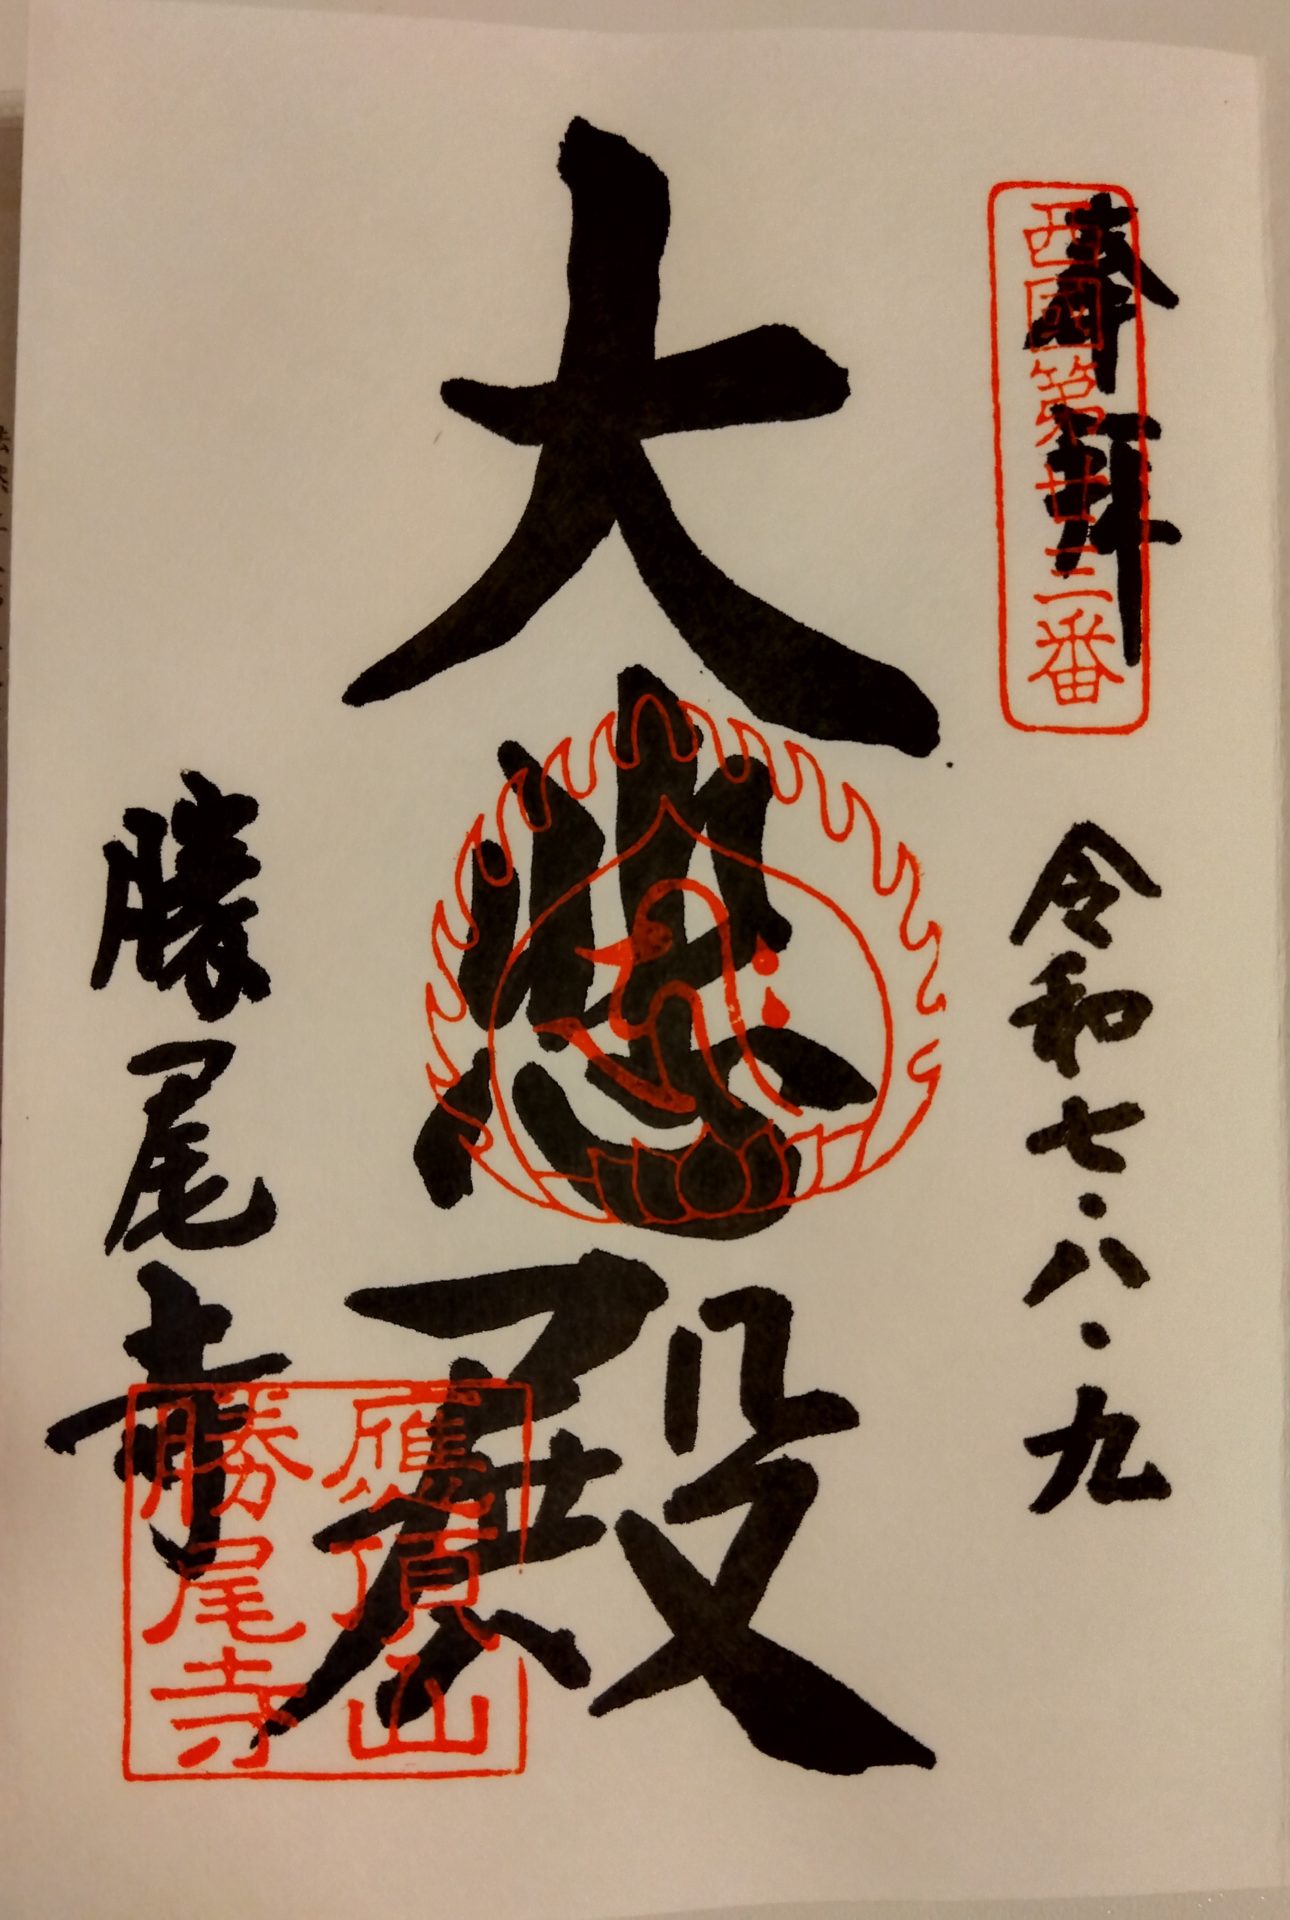 奉拝
西國第廿三番
令和七・八・九
大悲殿
勝尾寺
應頂山
勝尾寺